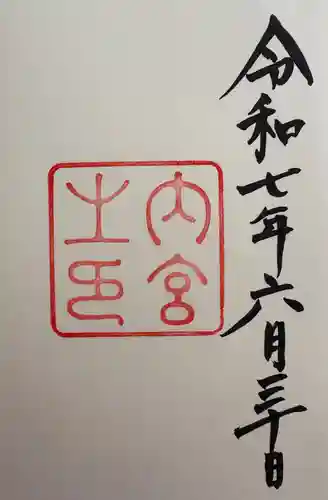 令和七年六月三十日
内宮
之印